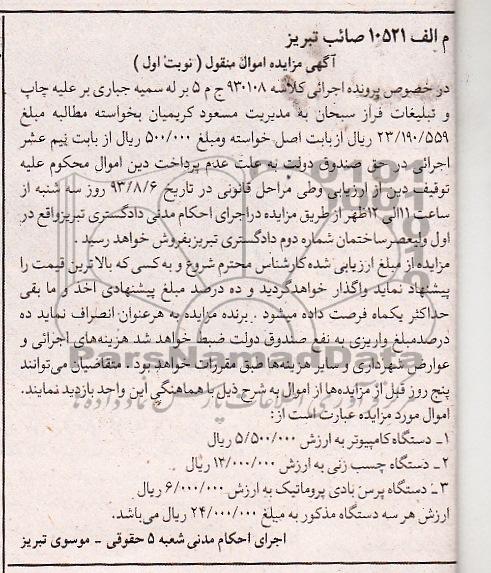 م الف ۱۰۵۲۱ صائب تبریز
آگهی مزایده اموال منقول ( نوبت اول )
در خصوص پرونده اجرائی کلاسه ۹۳۰۱۰۸ ج م ۵ بر له سمیه جباری بر علیه چاپ
و تبلیغات فراز سبحان به مدیریت مسعود کریمیان بخواسته مطالبه مبلغ
۲۳/۱۹۰/۵۵۹ ریال از بابت اصل خواسته ومبلغ ۵۰۰/۰۰۰ ریال از بابت نیم عشر
اجرائی در حق صندوق دولت به علت عدم پرداخت دین اموال محکوم علیه
توقیف دین از ارزیابی وطی مراحل قانونی در تاریخ ۹۳/۸/۶ روز سه شنبه از
ساعت ۱۱الی ۱۲ظهر از طریق مزایده دراجرای احکام مدنی دادگستری تبریزواقع در
اول ولیعصرساختمان شماره دوم دادگستری تبریزبفروش خواهد رسید .
مزایده از مبلغ ارزیابی شده کارشناس محترم شروع و به کسی که بالاترین قیمت را
پیشنهاد نماید واگذار خواهدگردید و ده درصد مبلغ پیشنهادی اخذ و ما بقی
حداکثر یکماه فرصت داده میشود . برنده مزایده به هرعنوان انصراف نماید ده
درصدمبلغ واریزی به نفع صندوق دولت ضبط خواهد شد هزینه‌های اجرائی و
عوارض شهرداری و سایر هزینه‌ها طبق مقررات خواهد بود . متقاضیان می‌توانند
پنج روز قبل از مزایده‌ها از اموال به شرح ذیل با هماهنگی این واحد بازدید نمایند.
اموال مورد مزایده عبارت است از:
۱- دستگاه کامپیوتر به ارزش ۵/۵۰۰/۰۰۰ ریال
۲- دستگاه چسب زنی به ارزش ۱۲/۰۰۰/۰۰۰ ریال
۳- دستگاه پرس بادی پروماتیک به ارزش ۶/۰۰۰/۰۰۰ ریال
ارزش هر سه دستگاه مذکور به مبلغ ۲۴/۰۰۰/۰۰۰ ریال می‌باشد.
اجرای احکام مدنی شعبه ۵ حقوقی - موسوی تبریز
ParsNamadData